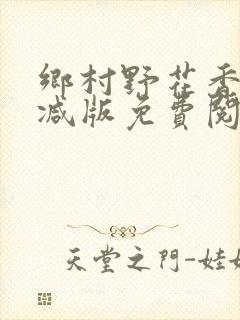 鄉村野花香
减版免費閱
天堂之門-娃娃